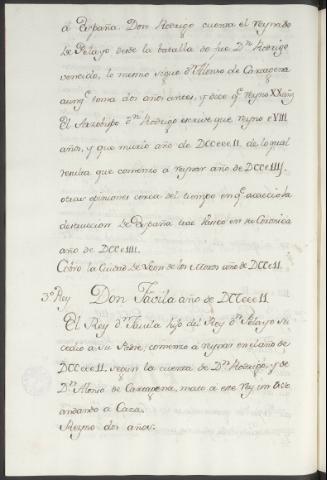 à España. Don Rodrigo cuenta el Reynado
de Pelayo desde la batalla de fue Dⁿ Rodrigo
vencido, lo mesmo sigue dⁿ Alonso de Cartagena
aunqᵉ toma dos años antes, y dice qᵉ Reyno XX añ
El Arzobispo dⁿ Rodrigo escrive que reyno e VIII
años, y que murió año de DCCcc 11. de lo qual
resulta que comenzo a reynar año de DCC 1111.
otras opiniones cerca del tiempo en qᵉ acaecio la
destruccion de España trae Vaseo en su Coronica
año de DCC e 1111.
Cobro la Ciudad de Leon de los Moros año de DCC e 11.
3º Rey Don Favila año de DCCcc 11.
El Rey dⁿ Favila hijo del Rey dⁿ Pelayo su
cedio a su Padre, comenzo à reynar en el año de
DCCcc 11. segun la cuenta de Dⁿ Rodrigo, y de
Dⁿ Alonso de Cartagena, mato a este rey un Oso
andando a Caza.
Reyno dos años.